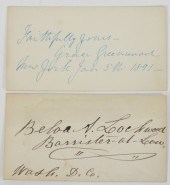 Faithfully yours—
Grace Greenwood
New York Jan. 5th 1891—
Belva A. Lockwood
Barrister-at-Law,
Wash. D.C.